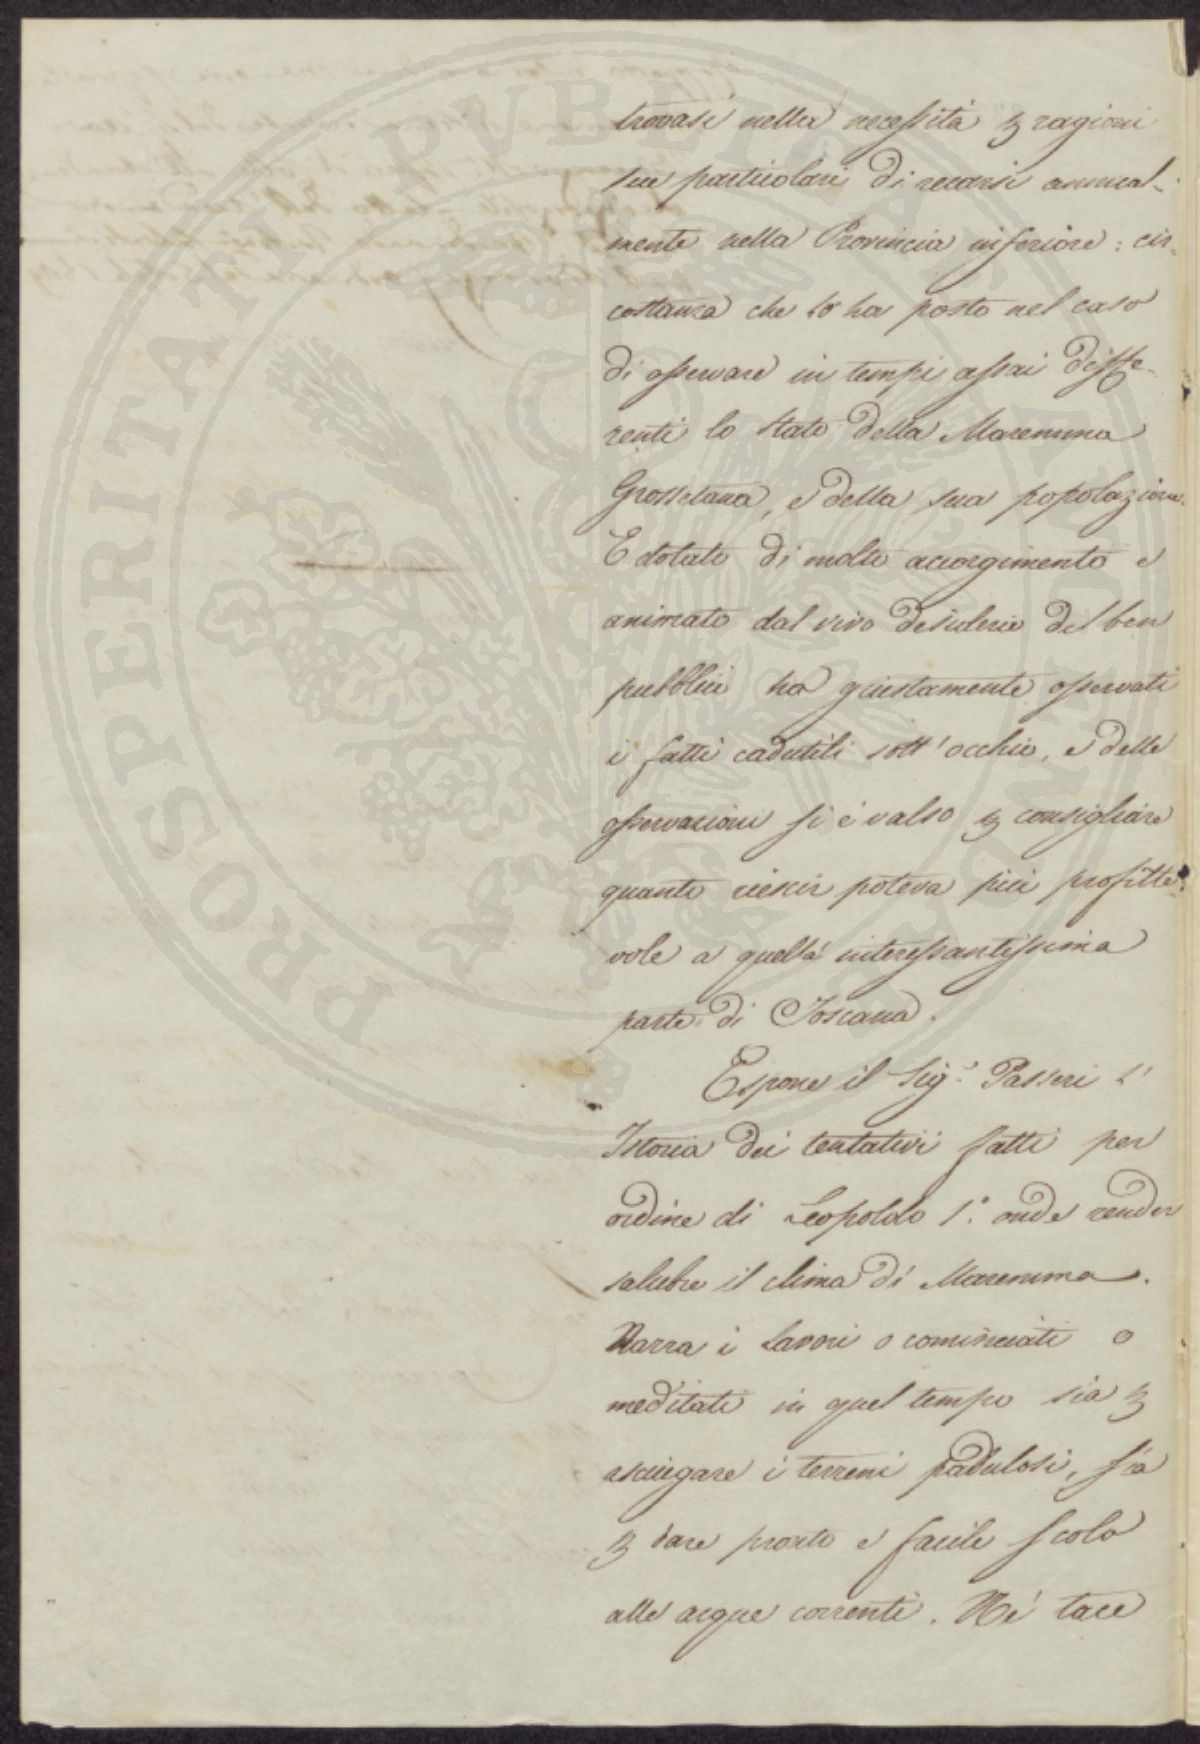 trovasi nella necessità ꝑ ragioni
sue particolari di recarsi annual-
mente nella Provincia inferiore: cir-
costanza che lo ha posto nel caso
di osservare in tempi assai diffe-
renti lo stato della Maremma
Grossetana, e della sua popolazione.
E dotato di molto accorgimento e
animato dal vivo desiderio del ben
pubblico ha giustamente osservati
i fatti cadutili sott'occhio, e delle
osservazioni si è valso ꝑ consigliare
quanto riescir poteva più profitte-
vole a quella interessantissima
parte di Toscana.
Espone il Sig.r Passeri l'
Istoria dei tentativi fatti per
ordine di Leopoldo 1.° onde render
salubre il clima di Maremma.
Narra i lavori o cominciati o
meditati in quel tempo sia ꝑ
asciugare i terreni padulosi, sia
ꝑ dare pronto e facile scolo
alle acque correnti. Né tace
PROSPERITATI PUBLICAE AUGENDAE